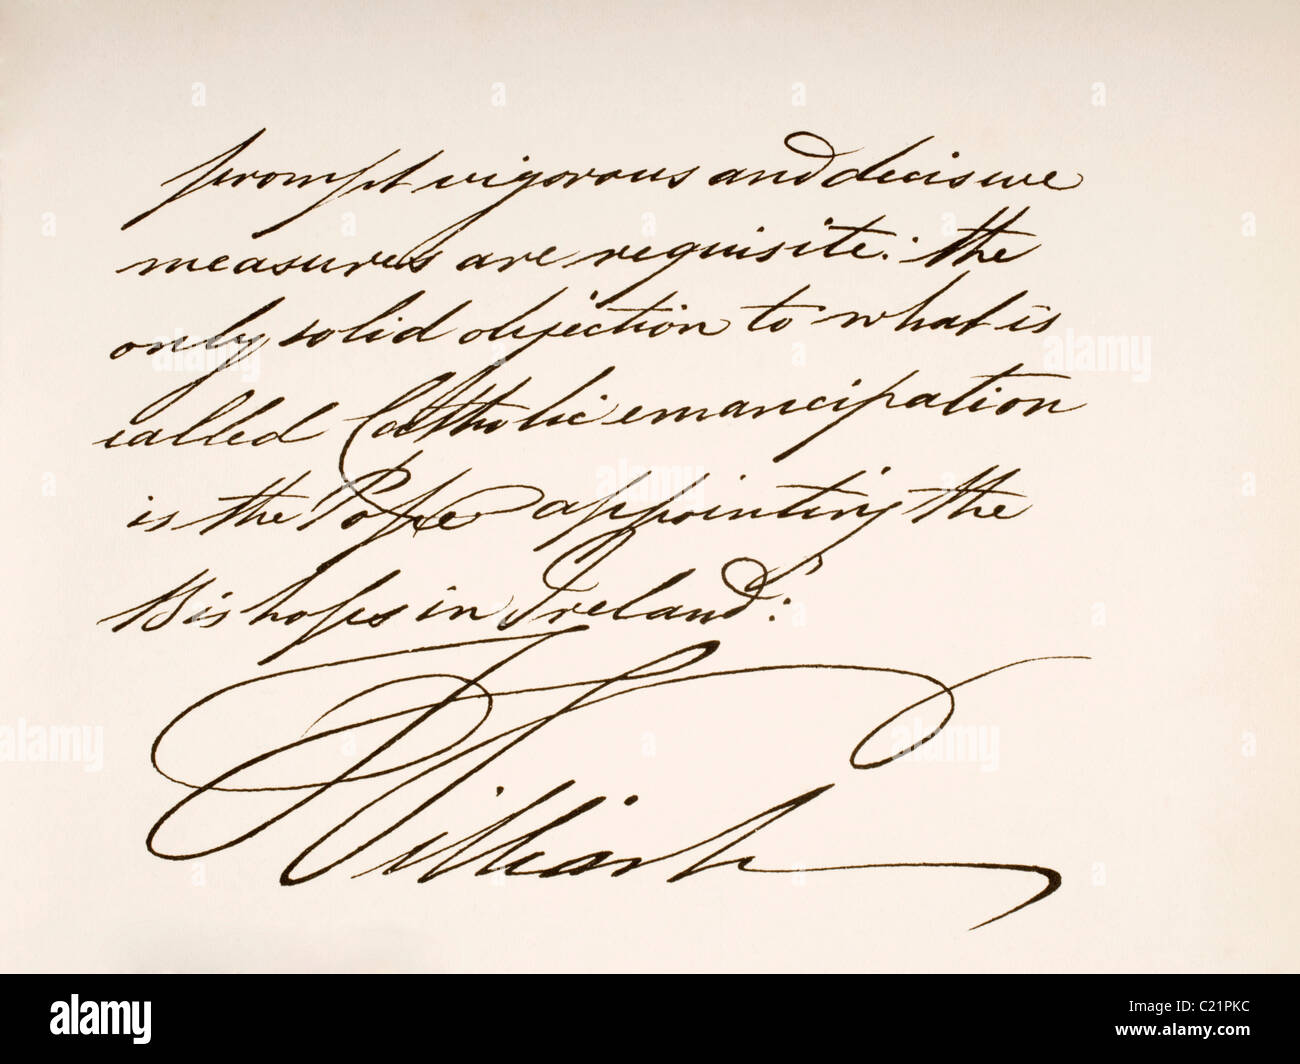 prompt vigorous and decisive
measures are requisite: the
only solid objection to what is
called Catholic emancipation
is the Pope appointing the
Bishops in Ireland:"
William
alamy
Image ID: C21PKC
www.alamy.com